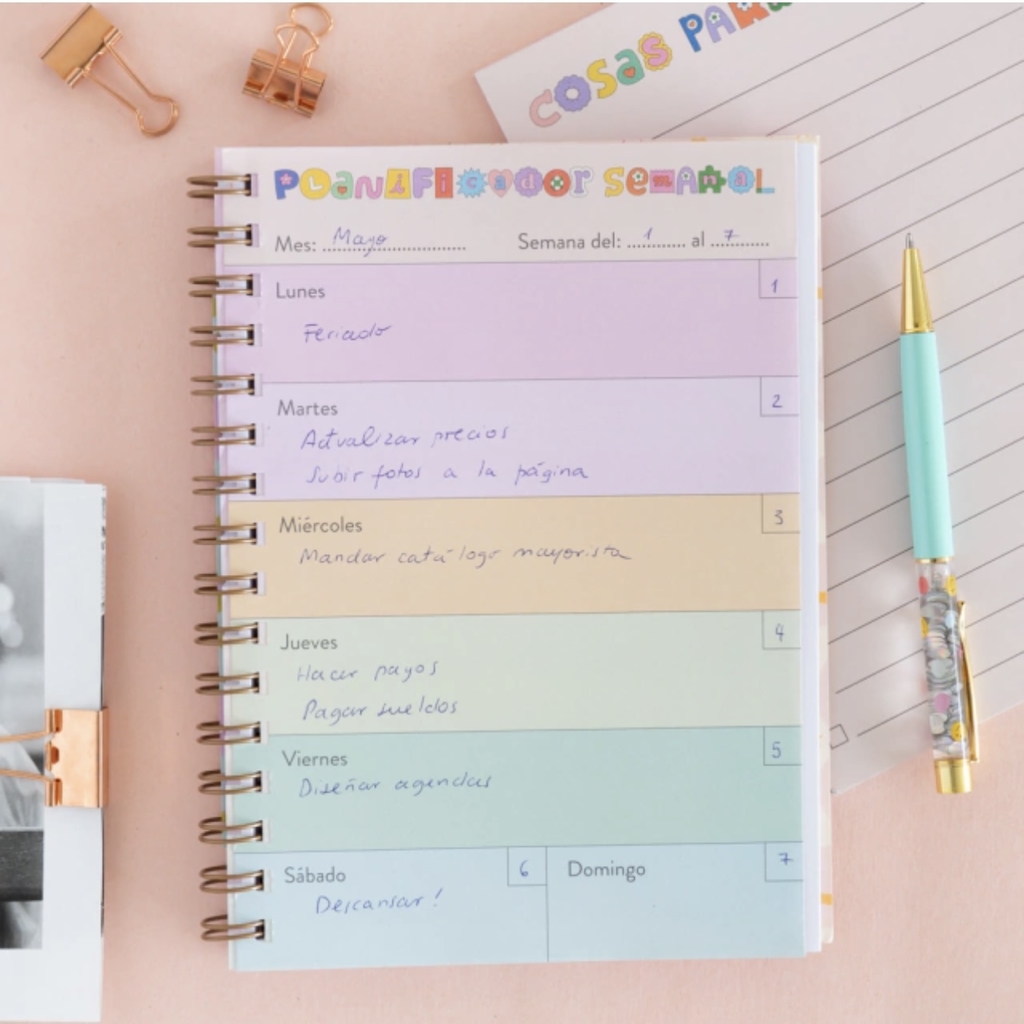 COSAS PARA
PLANIFICADOR SEMANAL
Mes: Mayo Semana del: 1 al 7
Lunes 1
Feriado
Martes 2
Actualizar precios
Subir fotos a la página
Miércoles 3
Mandar catálogo mayorista
Jueves 4
Hacer pagos
Pagar sueldos
Viernes 5
Diseñar agendas
Sábado 6 Domingo 7
Descansar!